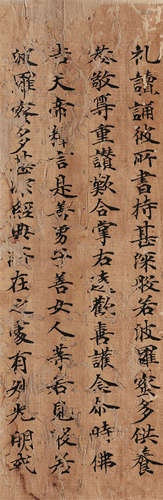 礼讀誦彼所書持甚深般若波羅蜜多供養
恭敬尊重讚歎合掌右遶歡喜護念尒時佛
告天帝釋言是善男子善女人等若見若
波羅蜜多甚深經典所在之處有妙光明或